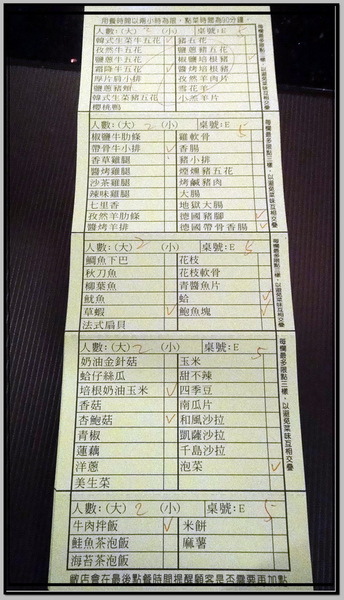 用餐時間以兩小時為限，點菜時間為90分鐘
人數:(大) 2 (小) 桌號:E 5
韓式生菜牛五花 豬五花
孜然牛五花 鹽蔥豬五花
鹽蔥牛五花 椒鹽松阪豬
霜降牛五花 醬烤培根豬
厚片肩小排 孜然羊肉片
鹽蔥豬頰 雪花羊
韓式生菜豬五花 小羔羊片
櫻桃鴨
每欄最多限點三樣，以避免菜味互相交疊
人數:(大) 2 (小) 桌號:E 5
椒鹽牛肋條 雞軟骨
帶骨牛小排 香腸
香草雞腿 豬小排
醬烤雞腿 煙燻豬五花
沙茶雞腿 烤鹹豬肉
辣味雞腿 大腸
七里香 地獄大腸
孜然羊肋條 德國豬腳
醬烤羊排 德國帶骨香腸
每欄最多限點三樣，以避免菜味互相交疊
人數:(大) 2 (小) 桌號:E 5
鯛魚下巴 花枝
秋刀魚 花枝軟骨
柳葉魚 青醬魚片
魷魚 蛤
草蝦 鮑魚塊
法式扇貝
人數:(大) 2 (小) 桌號:E 5
奶油金針菇 玉米
蛤仔絲瓜 甜不辣
培根奶油玉米 四季豆
香菇 南瓜片
杏鮑菇 和風沙拉
青椒 凱薩沙拉
蓮藕 千島沙拉
洋蔥 泡菜
美生菜
每欄最多限點三樣，以避免菜味互相交疊
人數:(大) 2 (小) 桌號:E 5
牛肉拌飯 米餅
鮭魚茶泡飯 麻薯
海苔茶泡飯
敝店會在最後點餐時間提醒顧客是否需要再加點